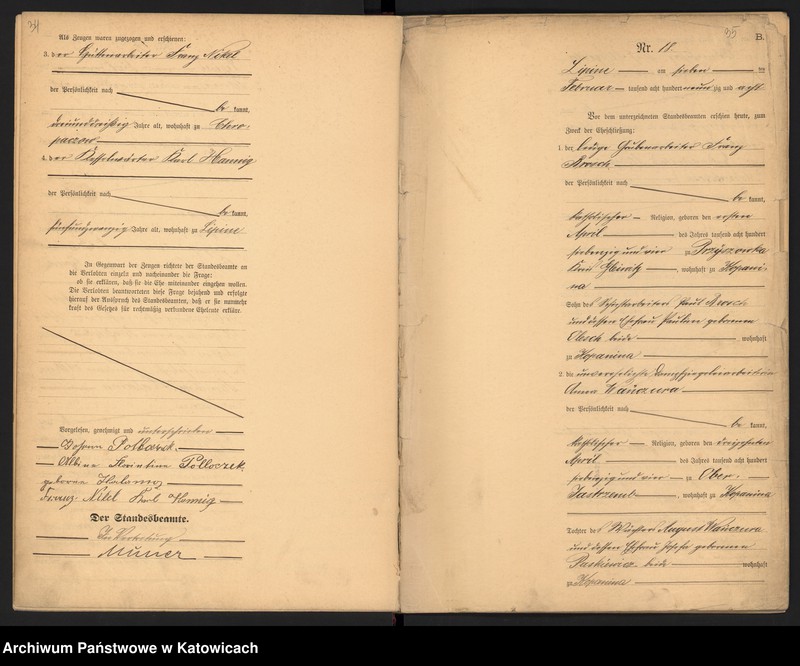 34
Als Zeugen waren zugezogen und erschienen:
3. der Hüttenarbeiter Franz Nikel
der Persönlichkeit nach
be kannt,
dreiunddreißig Jahre alt, wohnhaft zu Chro-
paczow
4. der Kesselwärter Karl Hannig
der Persönlichkeit nach
be kannt,
fünfundzwanzig Jahre alt, wohnhaft zu Lipine
In Gegenwart der Zeugen richtete der Standesbeamte an
die Verlobten einzeln und nacheinander die Frage:
ob sie erklären, daß sie die Ehe miteinander eingehen wollen.
Die Verlobten beantworteten diese Frage bejahend und erfolgte
hierauf der Ausspruch des Standesbeamten, daß er sie nunmehr
kraft des Gesetzes für rechtmäßig verbundene Eheleute erkläre.
Vorgelesen, genehmigt und unterschrieben
Johann
Albine Florentine Polloczek
geborene
Franz Nikel Karl Hannig
Der Standesbeamte.
In Vertretung
35
B.
Nr. 18.
Lipine am sieben ten
Februar tausend acht hundert neun zig und acht
Vor dem unterzeichneten Standesbeamten erschien heute, zum
Zweck der Eheschließung:
1. der ledige Grubenarbeiter Franz
Brosch
der Persönlichkeit nach
be kannt,
katholischer Religion, geboren den ersten
April des Jahres tausend acht hundert
siebenzig und vier zu Przyszowka
Kreis Gleiwitz, wohnhaft zu Kopani-
na
Sohn des Paul Brosch
und dessen Ehefrau Pauline geborenen
Olesch beide wohnhaft
zu Kopanina
2. die unverehelichte
Anna Wanczura
der Persönlichkeit nach
be kannt,
katholischer Religion, geboren den dreizehnten
April des Jahres tausend acht hundert
siebenzig und vier zu Ober-
Jastrzemb, wohnhaft zu Kopanina
Tochter des August Wanczura
und dessen Ehefrau Josefa geborenen
Paskiewicz beide wohnhaft
zu Kopanina
Archiwum Państwowe w Katowicach